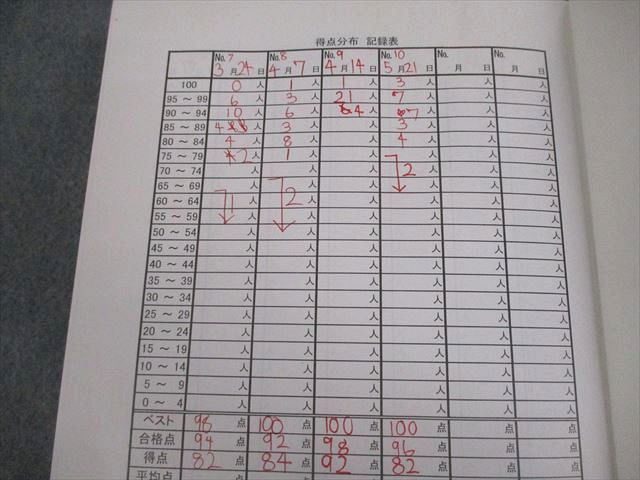 得点分布 記録表
No.7 No.8 No.9 No.10 No. No.
3月24日 4月7日 4月14日 5月21日 月 日 月 日
100 0人 1人 1人 3人 人 人
95 ～ 99 6人 3人 21人 7人 人 人
90 ～ 94 10人 6人 4人 7人 人 人
85 ～ 89 4人 3人 人 3人 人 人
80 ～ 84 4人 8人 人 4人 人 人
75 ～ 79 2人 1人 人 人 人 人
70 ～ 74 人 人 人 2人 人 人
65 ～ 69 人 人 人 人 人 人
60 ～ 64 1人 2人 人 人 人 人
55 ～ 59 人 人 人 人 人 人
50 ～ 54 人 人 人 人 人 人
45 ～ 49 人 人 人 人 人 人
40 ～ 44 人 人 人 人 人 人
35 ～ 39 人 人 人 人 人 人
30 ～ 34 人 人 人 人 人 人
25 ～ 29 人 人 人 人 人 人
20 ～ 24 人 人 人 人 人 人
15 ～ 19 人 人 人 人 人 人
10 ～ 14 人 人 人 人 人 人
5 ～ 9 人 人 人 人 人 人
0 ～ 4 人 人 人 人 人 人
ベスト 98点 100点 100点 100点 点 点
合格点 94点 92点 98点 96点 点 点
得点 82点 84点 92点 82点 点 点
平均点 点 点 点 点 点 点